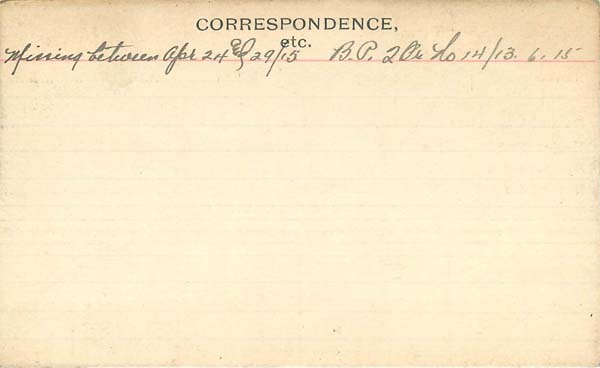 CORRESPONDENCE,
etc.
Missing between Apr 24 & 29/15 B.P. 2 No 14/13.6.15